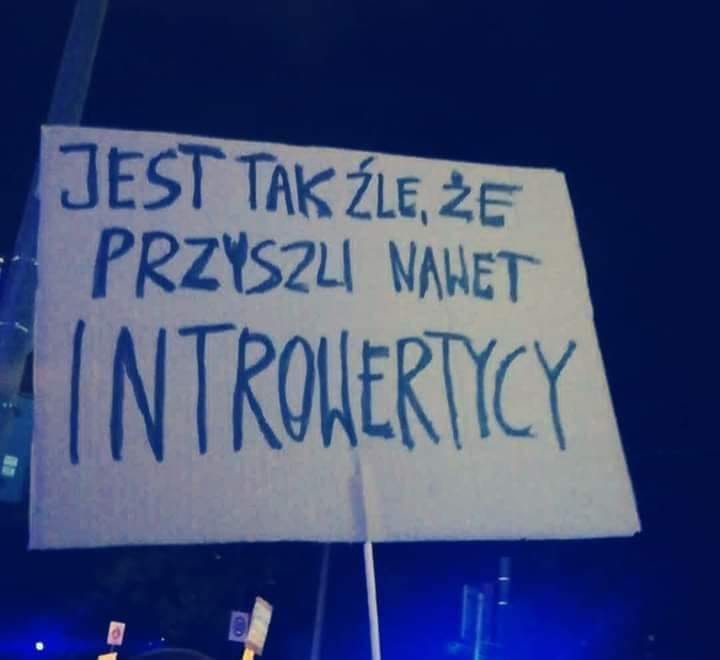 JEST TAK ŹLE, ŻE
PRZYSZLI NAWET
INTROWERTYCY